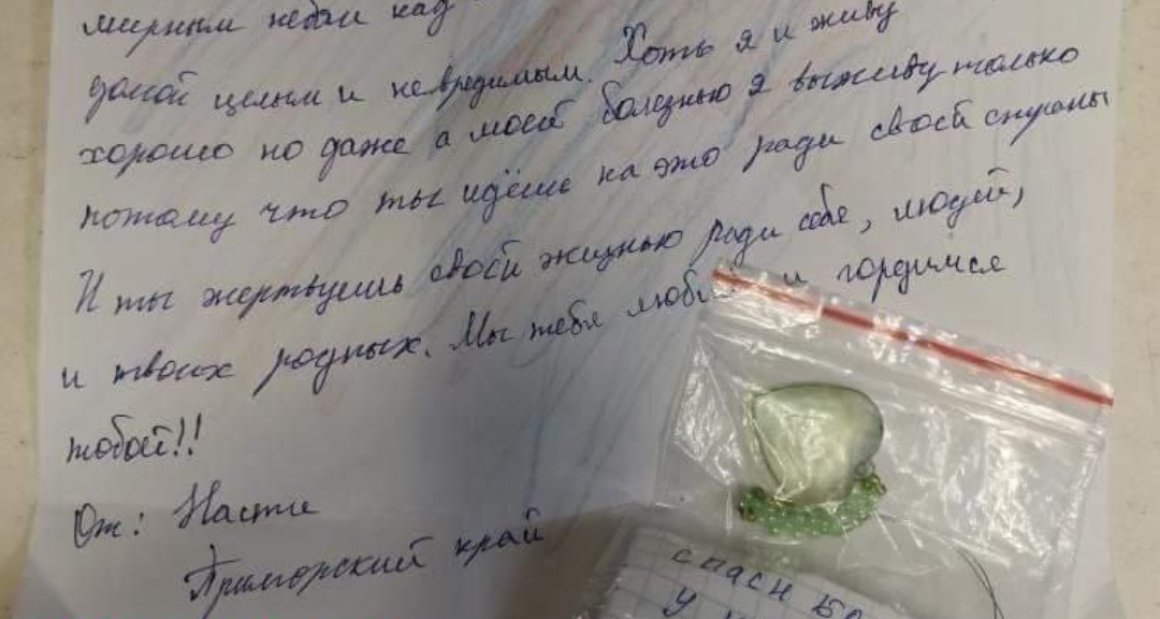 мирным небом над
домой целым и невредимым. Хоть я и живу
хорошо но даже а моей болезнью я выживу только
потому что ты идёшь на это ради своей страны
И ты жертвуешь своей жизнью ради себе, людей,
и твоих родных. Мы тебя люби и гордимся
тобой!!
От: Насти
Приморский край
спаси